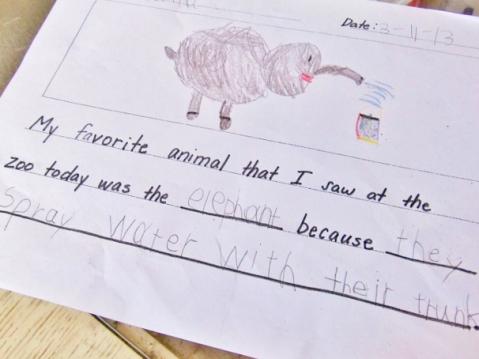 Date: 3-11-13
My favorite animal that I saw at the
zoo today was the elephant because they
spray water with their trunk